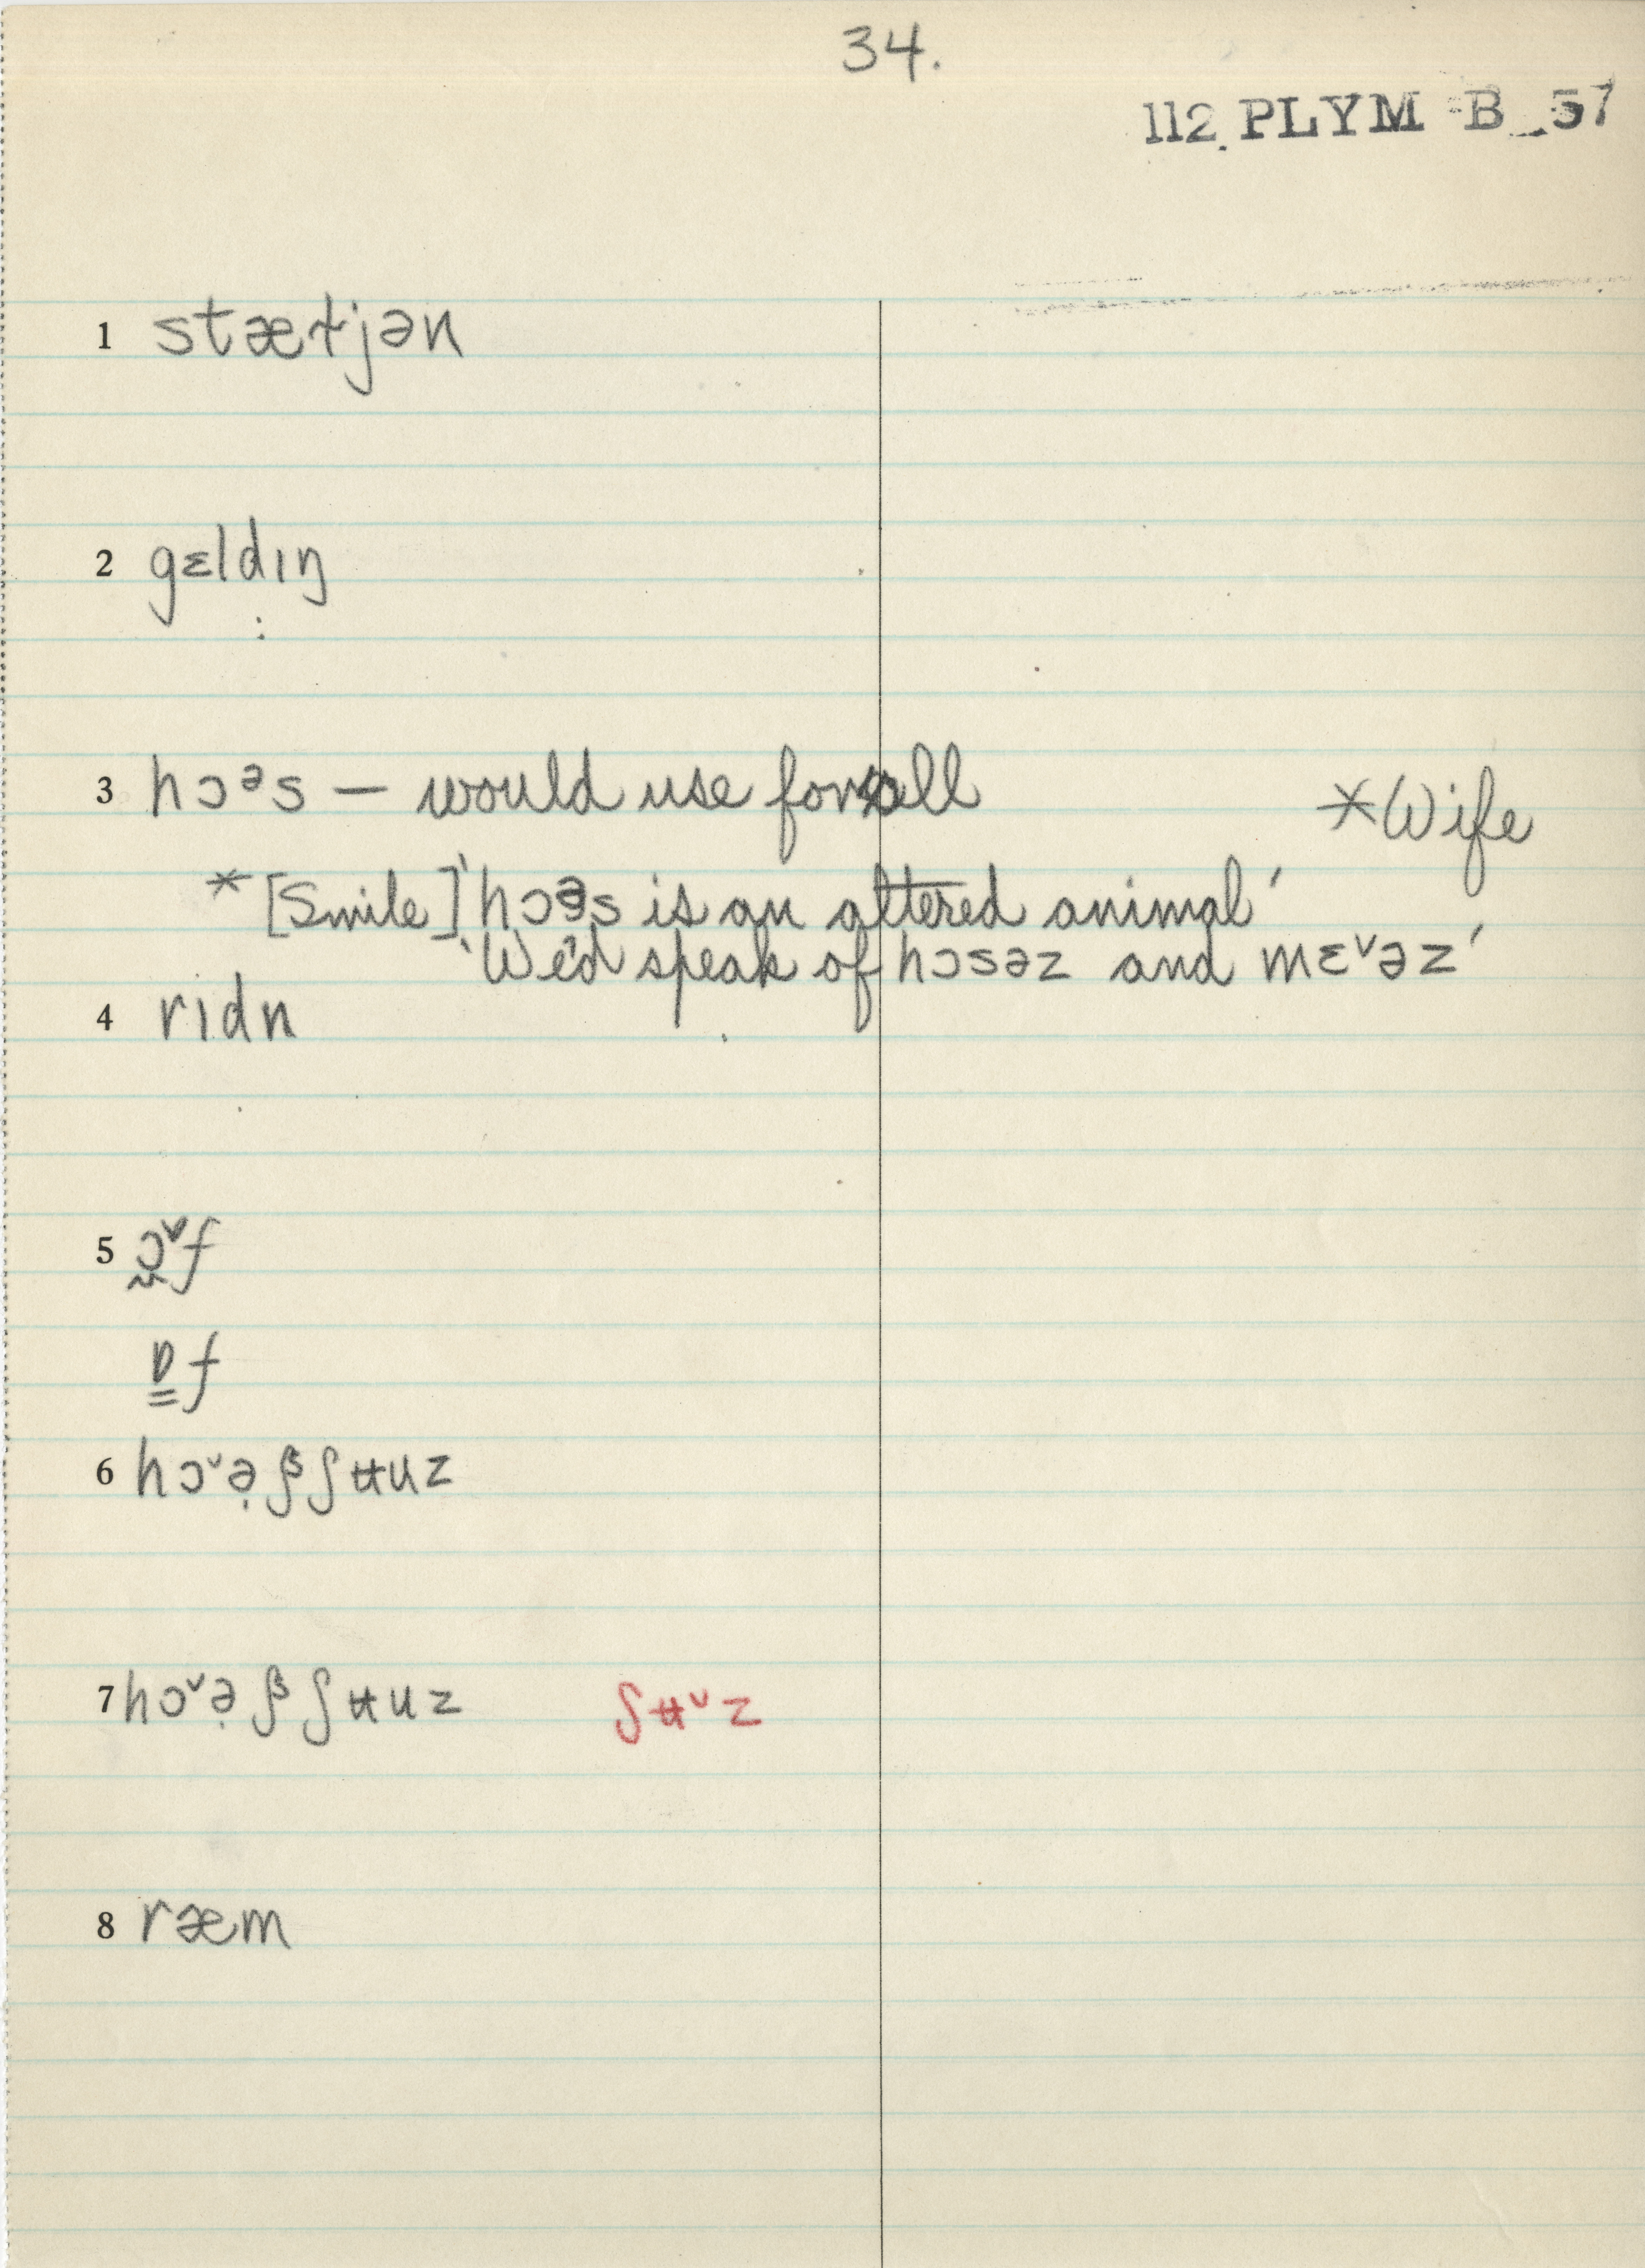 34.
112 PLYM B 57
1 stæɫjən
2 gɛldɪŋ
3 hɔᵊs – would use for all
*Wife
* [Smile] 'hɔəs is an altered animal'
'We'd speak of hɔsəz and mɛˇəz'
4 rɪdn
5 ɔ̰ˇf
ɒ̳f
6 hɔˇə̣ ʃᵝ ʃʉuz
7 hɔˇə̣ ʃᵝ ʃʉuz ʃʉˇz
8 ræm